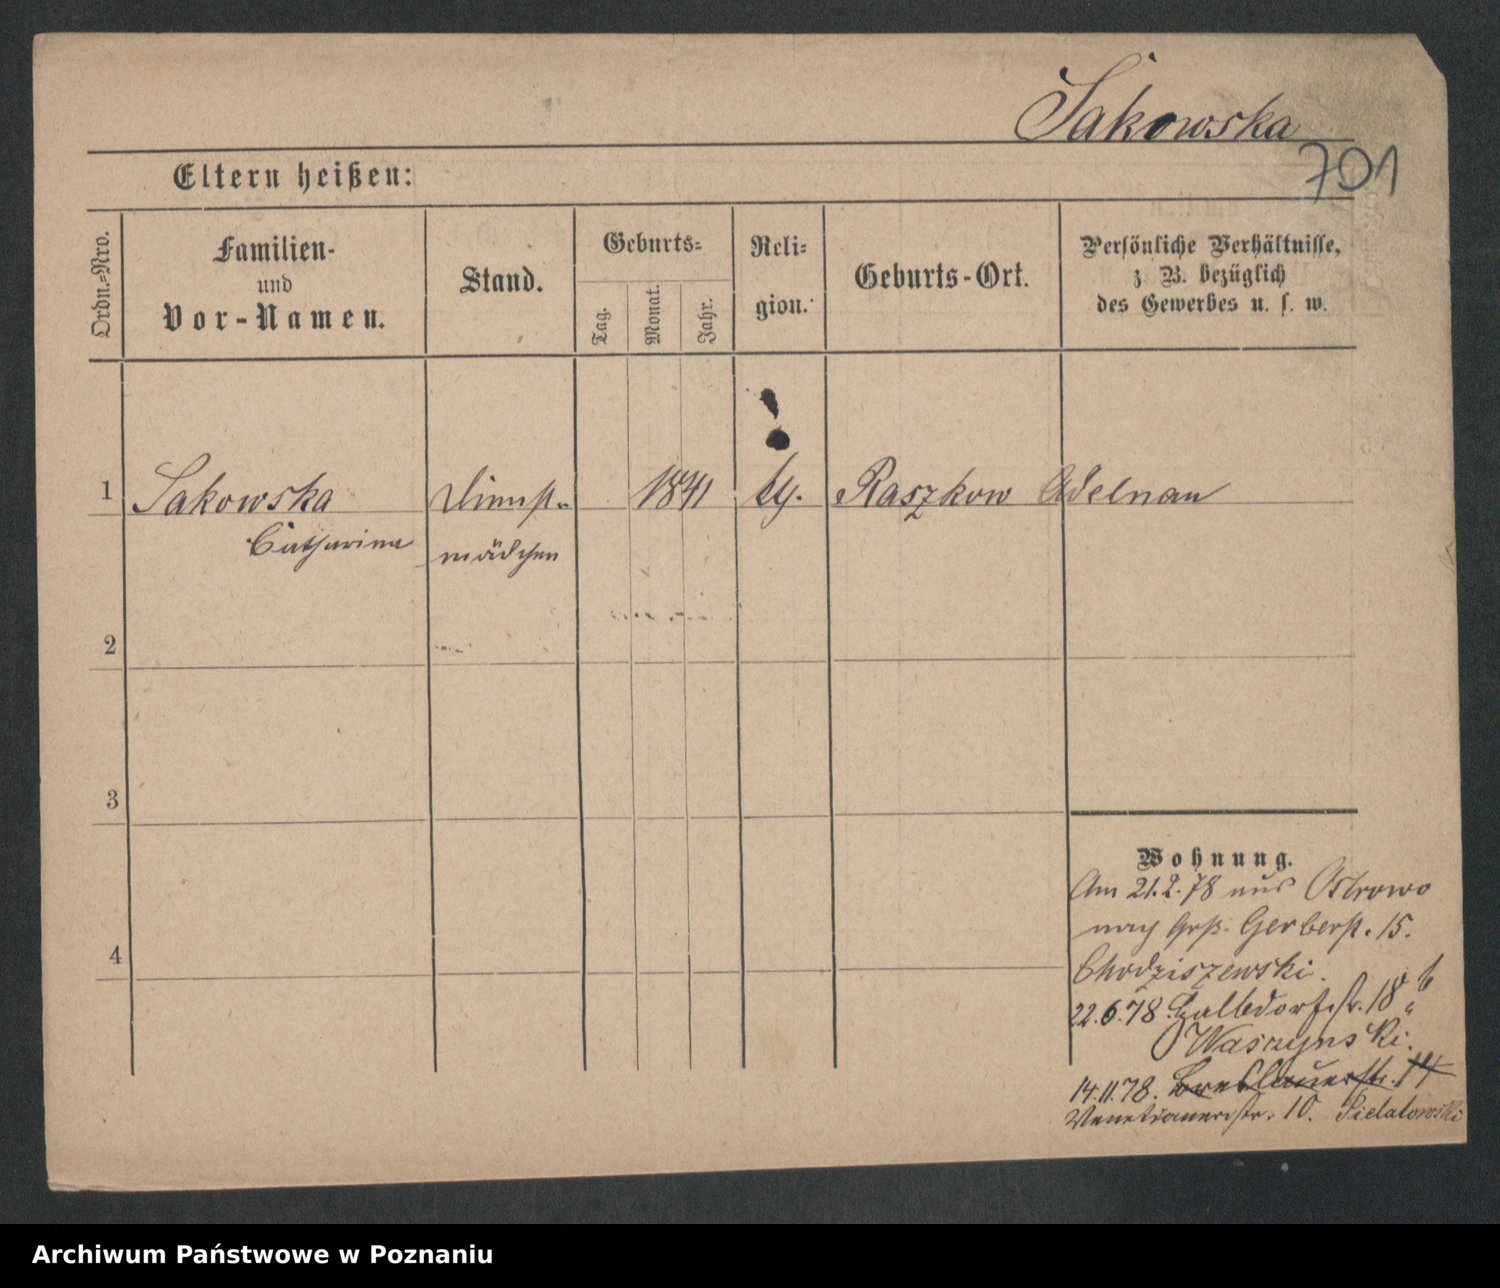 Sakowska
701
Eltern heißen:
Ordn.=Nro.
Familien-
und
Vor-Namen.
Stand.
Geburts=
Tag.
Monat.
Jahr.
Reli=
gion.
Geburts-Ort.
Persönliche Verhältnisse,
z. B. bezüglich
des Gewerbes u. s. w.
1 Sakowska Dienst- 1841 Raszkow Adelnau
Catharina mädchen
2
3
4
Wohnung.
Am 21.2.78 aus Ostrowo
nach Grß. Gerberst. 15.
Chodziszewski.
22.6.78 Halbdorfstr. 18
Waszynski.
14.11.78. Breslauerstr. 14
Venetianerstr. 10.
Archiwum Państwowe w Poznaniu